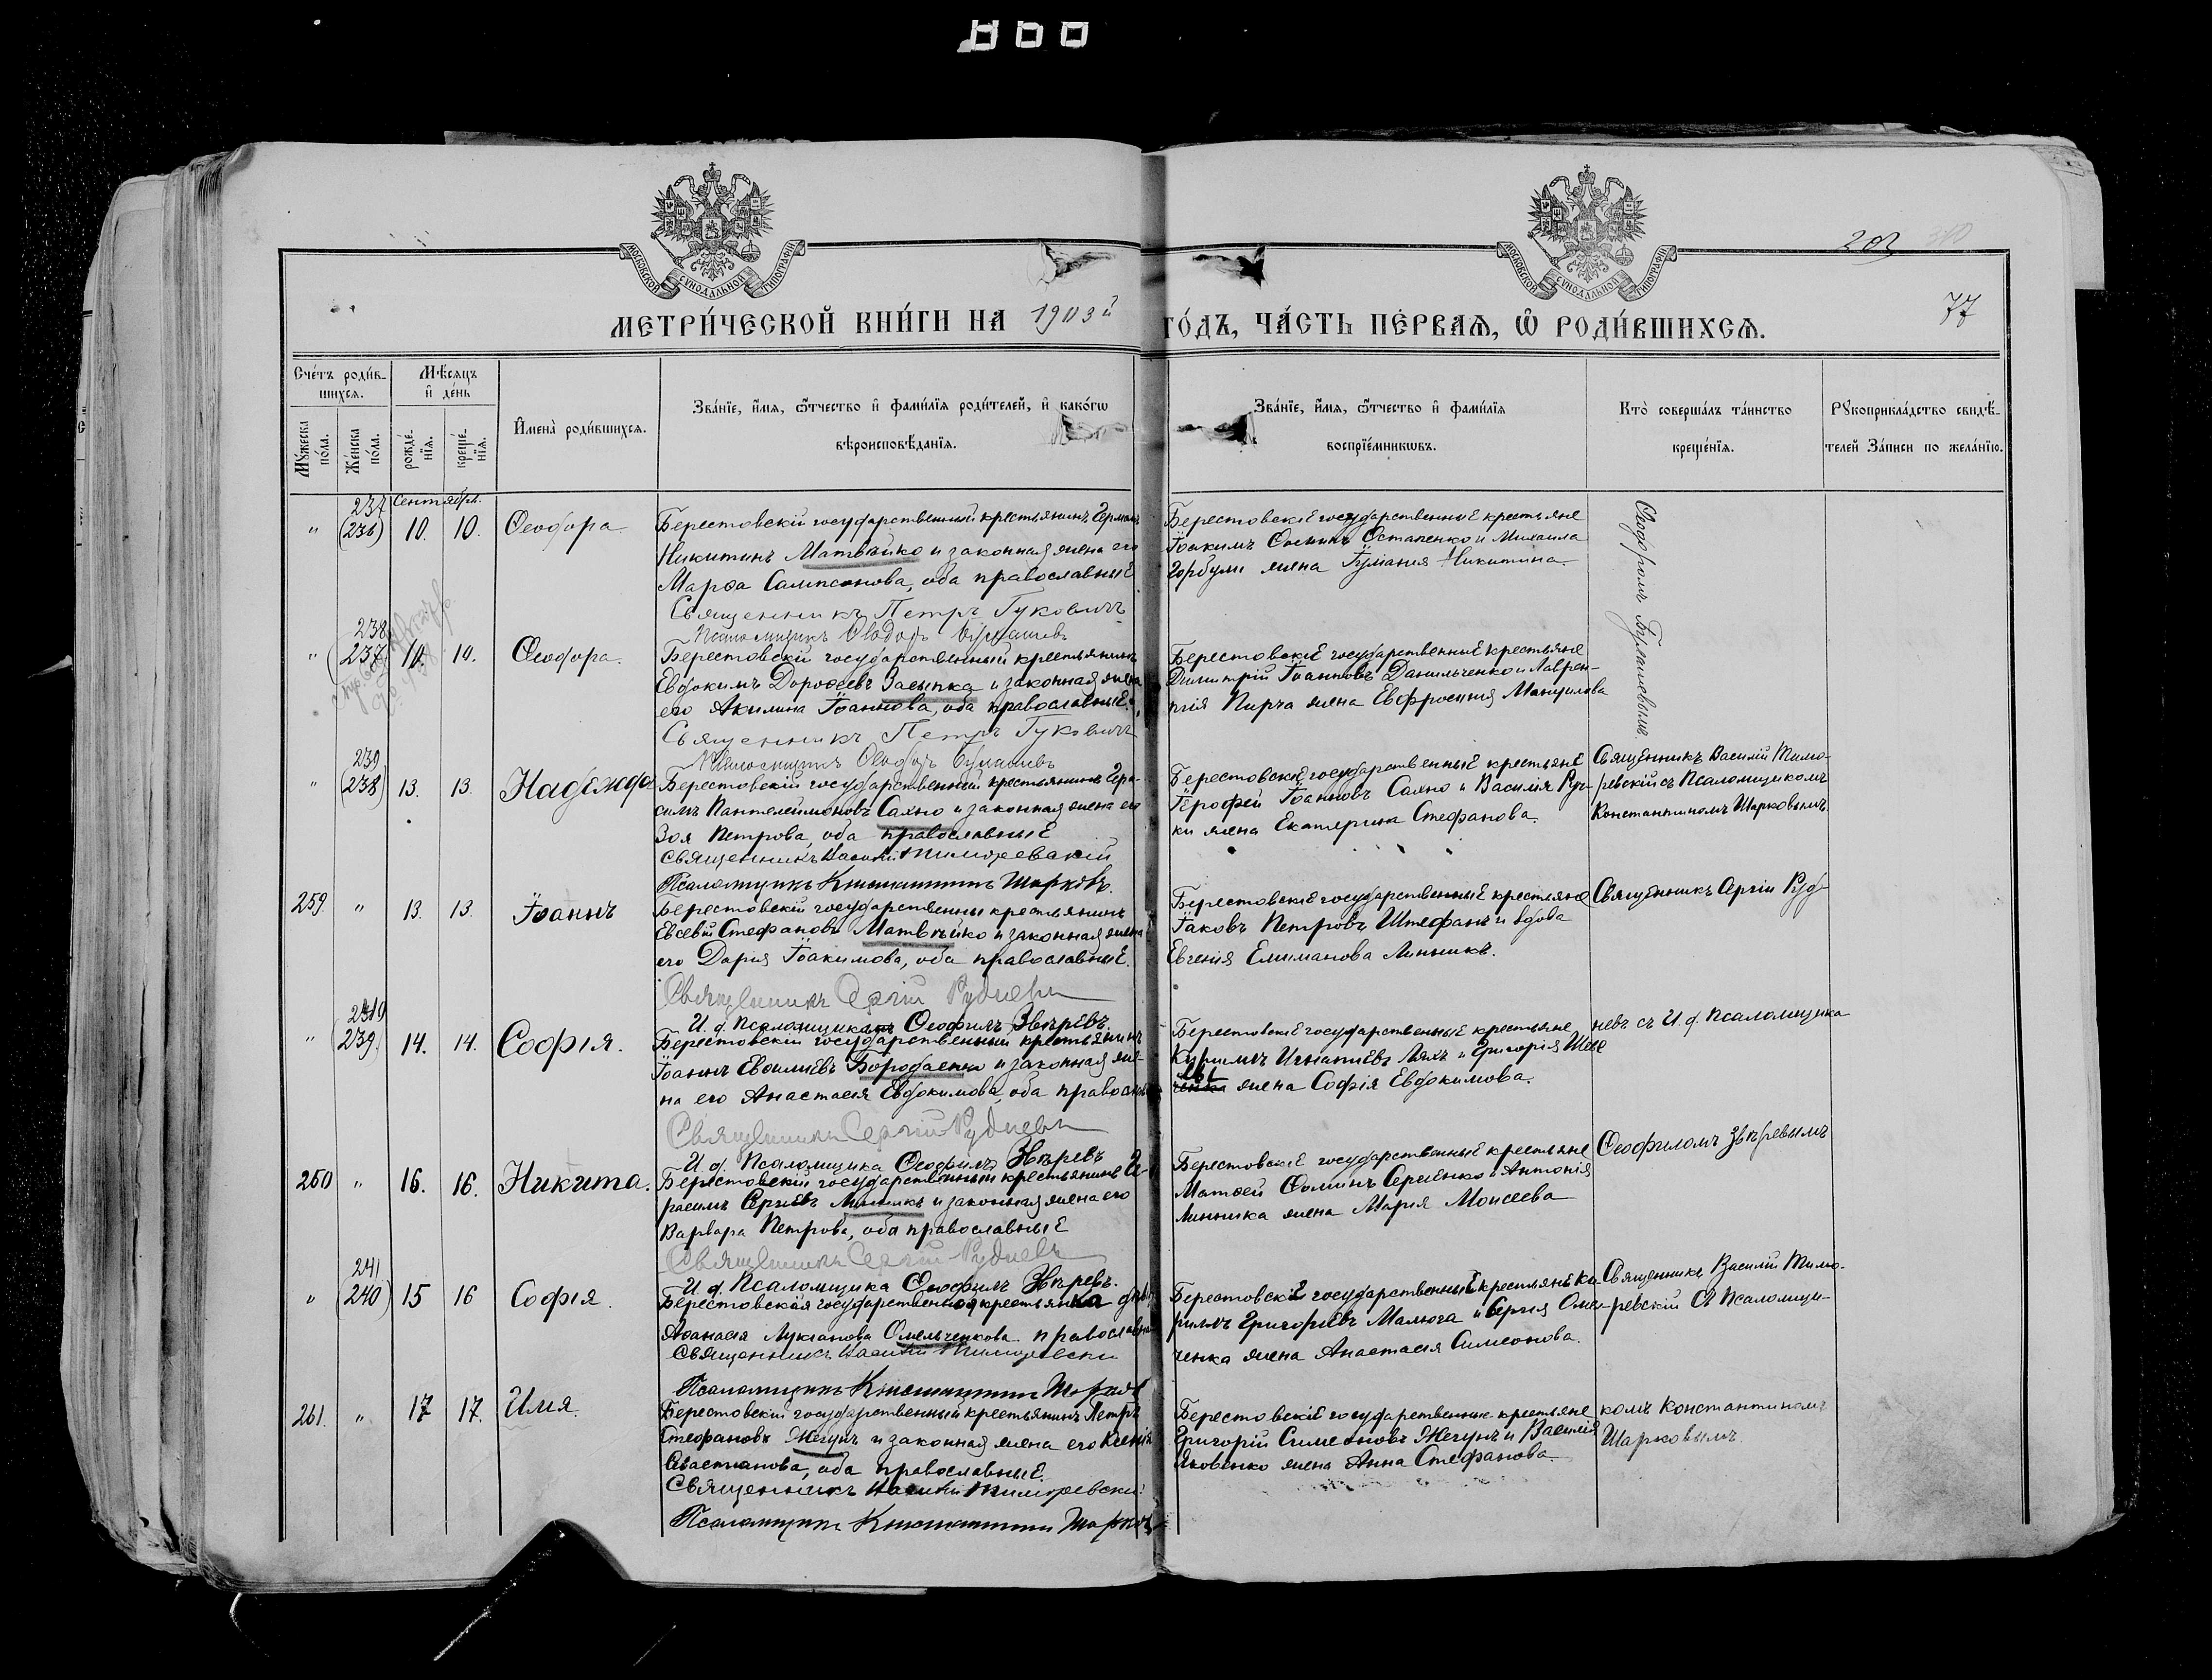 МОСКОВСКОЙ СУНОДАЛЬНОЙ ТИПОГРАФІИ
МОСКОВСКОЙ СУНОДАЛЬНОЙ ТИПОГРАФІИ
203
77
МЕТРИ́ЧЕСКОЙ КНИ́ГИ НА 1903й ГО́ДЪ, ЧА́СТЬ ПЕ́РВАѦ, Ѿ РОДИ́ВШИХСѦ.
Сче́тъ роди́в-
шихсѧ.
Мꙋ́жеска по́ла.
Же́нска по́ла.
Мѣ́сѧцъ
и҆ де́нь
рожде́-
нїѧ.
креще́-
нїѧ.
И҆мена̀ роди́вшихсѧ.
Зва́нїе, и҆́мѧ, ѻ҆́тчество и҆ фами́лїѧ роди́телей, и҆ како́гѡ
вѣроисповѣ́данїѧ.
Зва́нїе, и҆́мѧ, ѻ҆́тчество и҆ фами́лїѧ
воспрїе́мникѡвъ.
Кто̀ соверша́лъ та́инство
креще́нїѧ.
Рꙋкоприкла́дство свидѣ́-
телей За́писи по жела́нїю.
Сентября.
237
" (236) 10. 10. Ѳеодора
Берестовскій государственный крестьянинъ Герман
Никитинъ Матвѣйко и законная жена его
Марѳа Сампсонова, оба православные
Священникъ Петръ Гукович
Псаломщикъ Ѳеодоръ
Берестовскіе государственные крестьяне
Іоакимъ Ѳоминъ Остапенко и Михаила
Горбули жена Іуліанія Никитина.
238
" (237 10. 10. Ѳеодора.
Берестовскій государственный крестьянинъ
Евдокимъ Дороѳеевъ Засыпка и законная жена
его Акилина Іоаннова, оба православные.
Священникъ Петръ Гукович
Псаломщикъ Ѳеодоръ
Берестовскіе государственные крестьяне
Димитрій Іоанновъ Данильченко и Лаврен-
тія Пирча жена Евфросинія Мануилова
239
" (238) 13. 13. Надежда
Берестовскій государственный крестьянинъ Гера-
симъ Пантелеимоновъ Сахно и законная жена его
Зоя Петрова, оба православные
Священникъ Василій Тиморевский
Псаломщикъ Константинъ Шарковъ.
Берестовскіе государственные крестьяне
Іерофей Іоанновъ Сахно и Василія Руч-
ки жена Екатерина Стефанова.
Священникъ Василій Тимо-
ревскій съ Псаломщикомъ
Константиномъ Шарковымъ.
259. " 13. 13. Іоаннъ
Берестовскій государственны крестьянинъ
Евсевій Стефановъ Матвѣйко и законная жена
его Дарія Іоакимова, оба православные.
Священникъ Сергій Рудневъ
И. д. Псаломщика Ѳеофилъ Звѣревъ.
Берестовскіе государственные крестьяне
Іаковъ Петровъ Штефанъ и вдова
Евгенія Елиманова Линникъ.
Священникъ Сергій Руд-
" (239.) 14. 14. Софія.
Берестовскій государственный крестьянинъ
Іоаннъ Евсиліевъ Бородаенко и законная же-
на его Анастасія Евдокимова, оба правосл
Священникъ Сергій Рудневъ
И. д. Псаломщика Ѳеофилъ Звѣревъ
Берестовскіе государственные крестьяне
Игнатіевъ Ляхъ и Григорія Шев
жена Софія Евдокимова.
невъ съ И. д. Псаломщика
260 " 16. 16. Никита.
Берестовскій государственный крестьянинъ Ге-
расимъ Сергіевъ Линникъ и законная жена его
Варвара Петрова, оба православные
Священникъ Сергій Рудневъ
И. д. Псаломщика Ѳеофилъ Звѣревъ.
Берестовскіе государственные крестьяне
Матѳей Ѳоминъ Сергіенко и Антонія
Линника жена Марія Моисеева
Ѳеофиломъ Звѣревымъ
241
" (240) 15 16 Софія.
Берестовская государственная крестьянка
Аѳанасія Лукіанова Омельченкова православная
Священникъ Василій Тиморевски
Псаломщикъ Константинъ Шарков
Берестовскіе государственные крестьяне Ки-
риллъ Григоріевъ Малюга и Сергія Омел-
ченка жена Анастасія Симеонова.
Священникъ Василій Тимо-
ревскій съ Псаломщи-
261. " 17 17. Илія.
Берестовскій государственный крестьянинъ Петръ
Стефановъ Жегунъ и законная жена его Ксенія
Севастіанова, оба православные.
Священникъ Василій Тиморевский
Псаломщикъ Константинъ Шарков
Берестовскіе государственные крестьяне
Григорій Симеоновъ Жегунъ и Василія
Яковенко жена Анна Стефанова.
комъ Константиномъ
Шарковымъ.